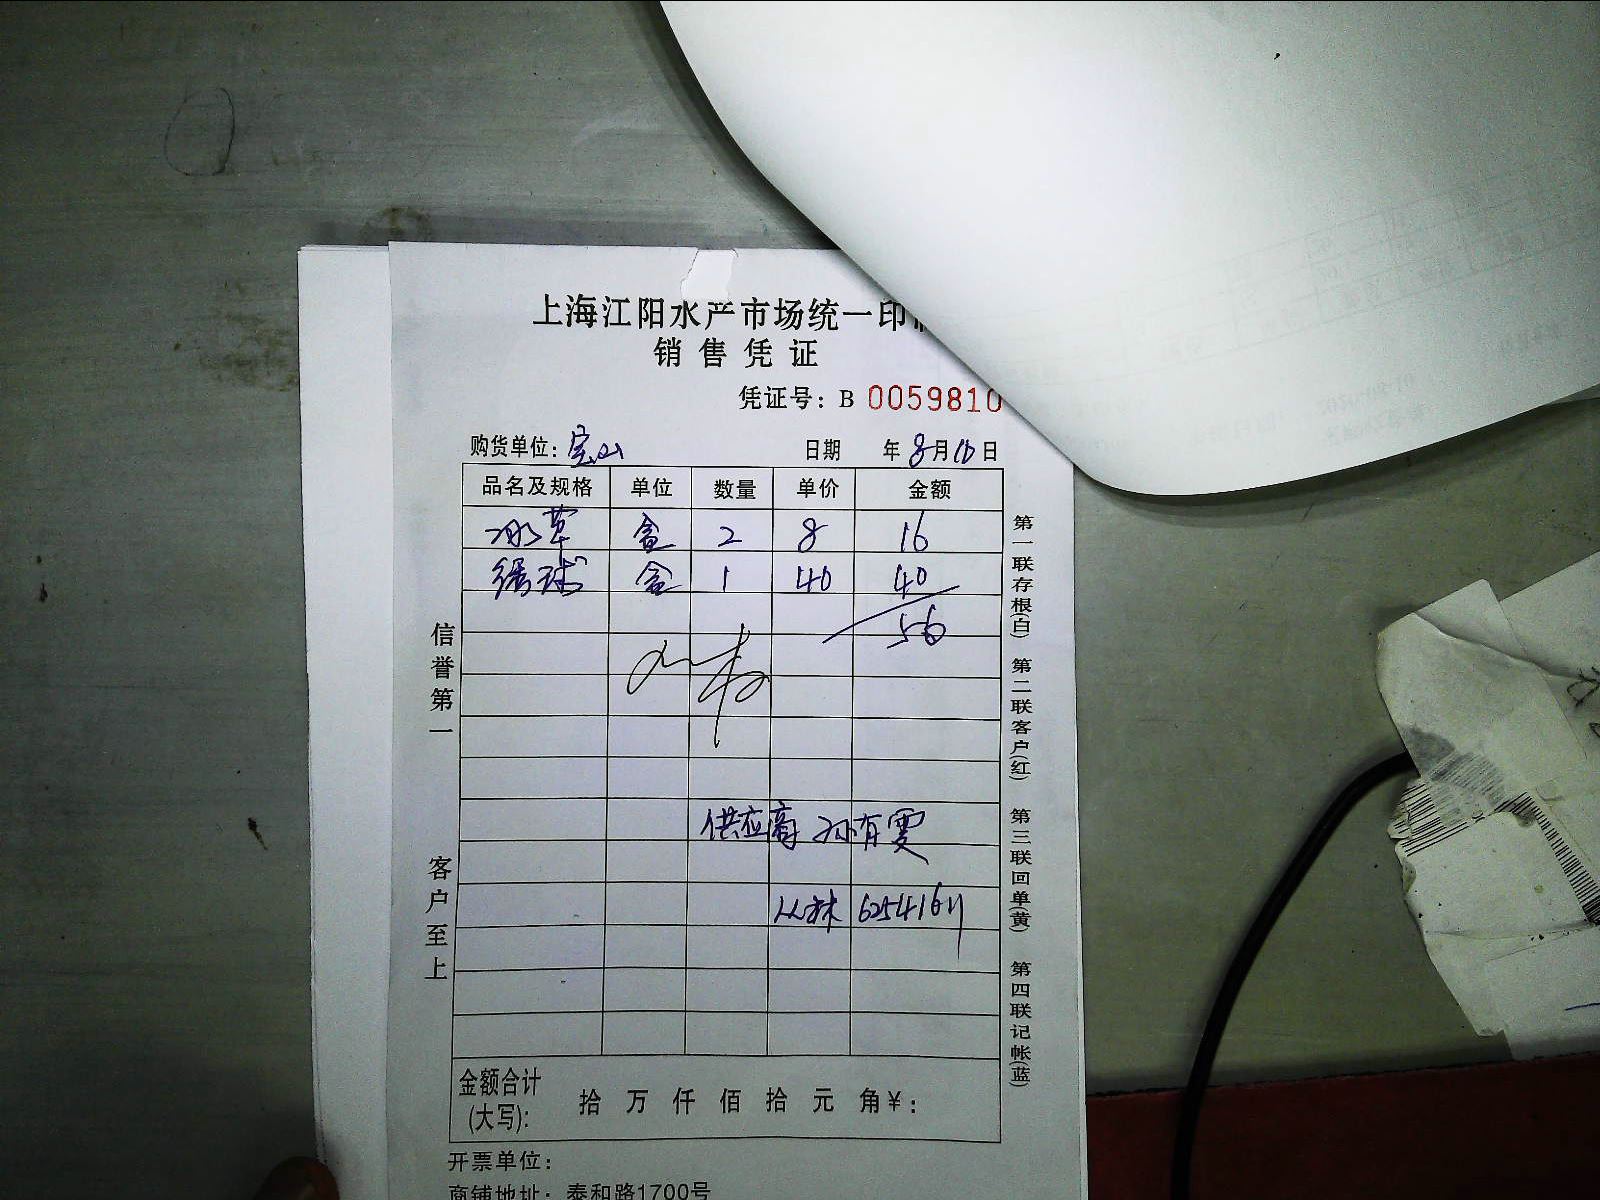 上海江阳水产市场统一印
销售凭证
凭证号：B 0059810
购货单位：宝山 日期 年8月10日
品名及规格 单位 数量 单价 金额
冰草 盒 2 8 16
绣球 盒 1 40 40
56
供应商 孙有雯
丛林 62541611
金额合计(大写)： 拾 万 仟 佰 拾 元 角¥：
开票单位：
商铺地址：泰和路1700号
信誉第一
客户至上
第一联存根(白) 第二联客户(红) 第三联回单(黄) 第四联记帐(蓝)